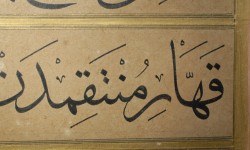 قَهَّارِ مُنْتَقِمدَن